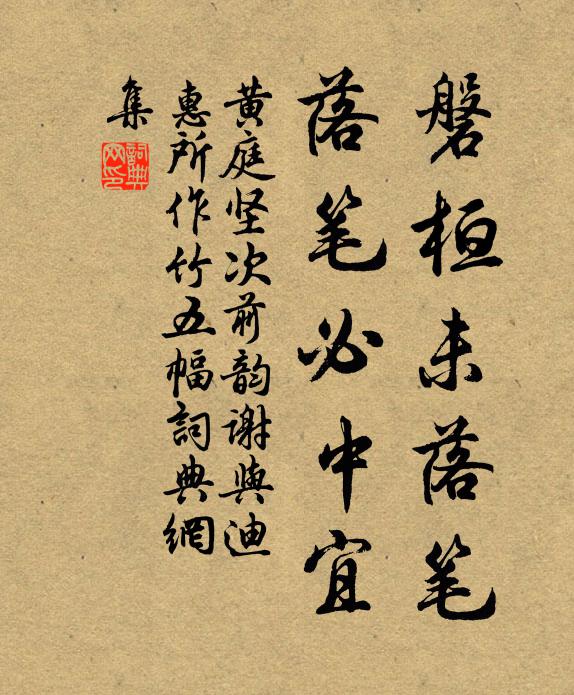 磐桓未落笔
落笔必中宜
黄庭坚次前韵谢與迪
惠所作竹五幅詞典網
集
詞典網印